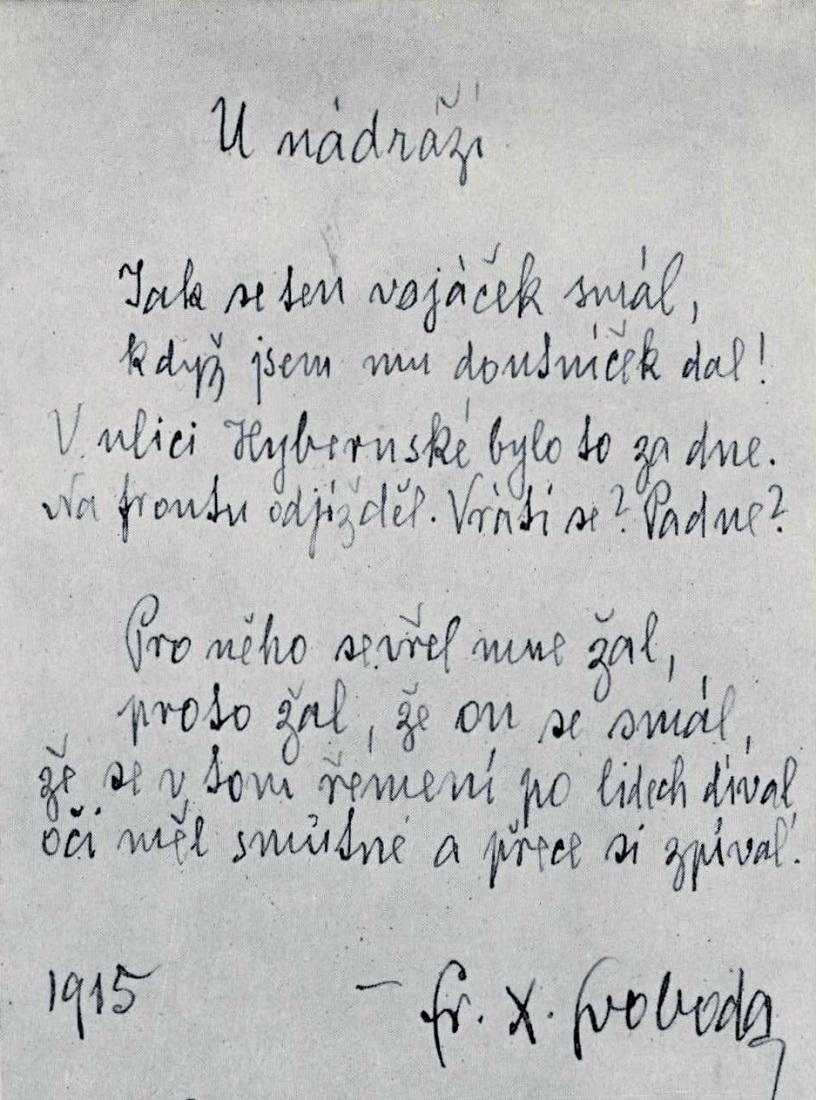 U nádraží
Jak se ten vojáček smál,
když jsem mu doutníček dal!
V ulici Hybernské bylo to za dne.
Na frontu odjížděl. Vrátí se? Padne?
Pro něho sevřel mne žal,
proto žal, že on se smál,
že se v tom řemení po lidech díval
oči měl smutné a přece si zpíval.
1915 – Fr. X. Svoboda